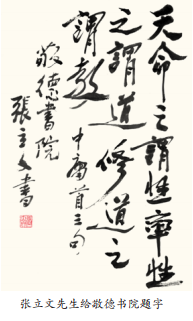 天命之謂性率性
之謂道修道之
謂教
中庸首三句
敬德書院
張立文書
张立文先生给敬德书院题字